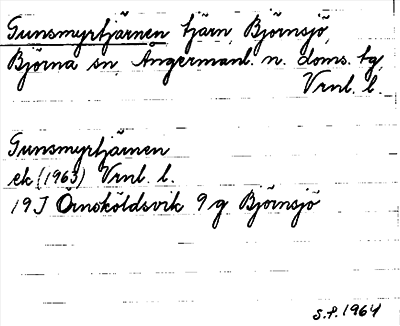 Gunsmyrtjärnen tjärn, Björnsjö,
Björna sn, Ångermanl. n. doms. tg,
Vrnl. l.
Gunsmyrtjärnen
ek (1963) Vrnl. l.
19J Örnsköldsvik 9g Björnsjö
S.f. 1964